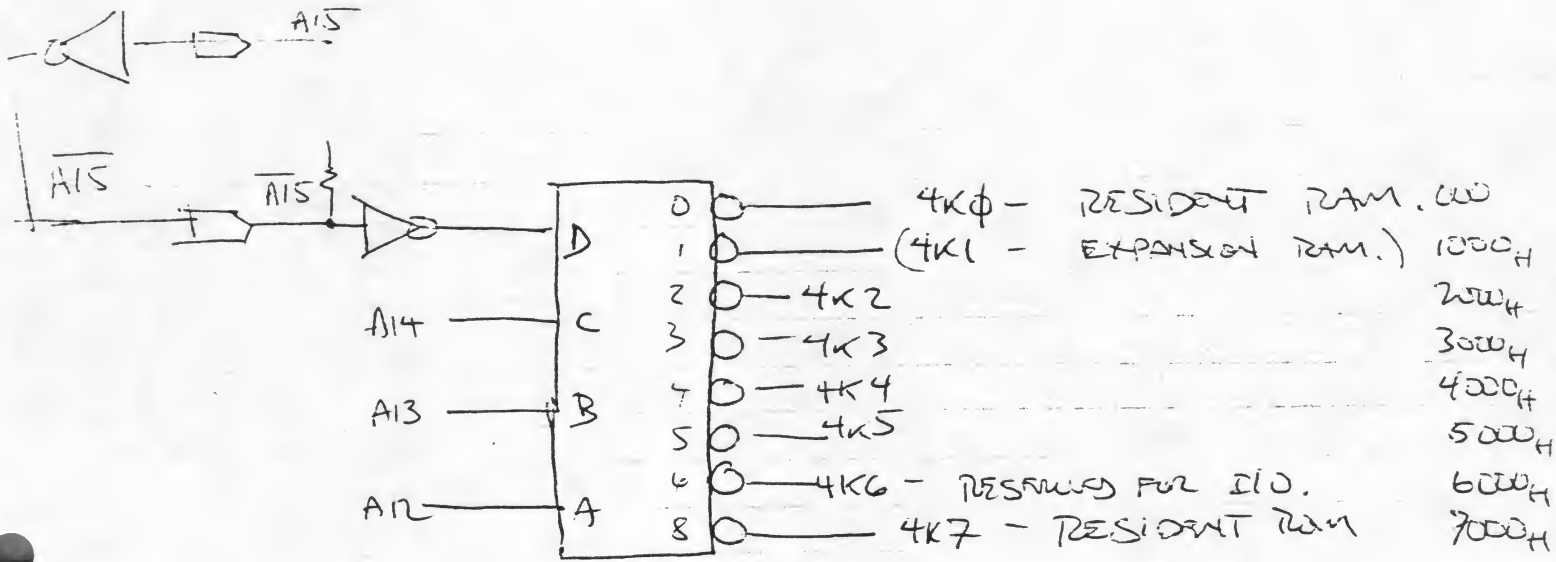 A15
A̅1̅5̅ A̅1̅5̅
D 0 4Kφ - RESIDENT RAM. 000
1 (4K1 - EXPANSION RAM.) 1000H
2 4K2 2000H
A14 C 3 4K3 3000H
4 4K4 4000H
A13 B 5 4K5 5000H
6 4K6 - RESERVED FOR I/O. 6000H
A12 A 8 4K7 - RESIDENT RAM 7000H